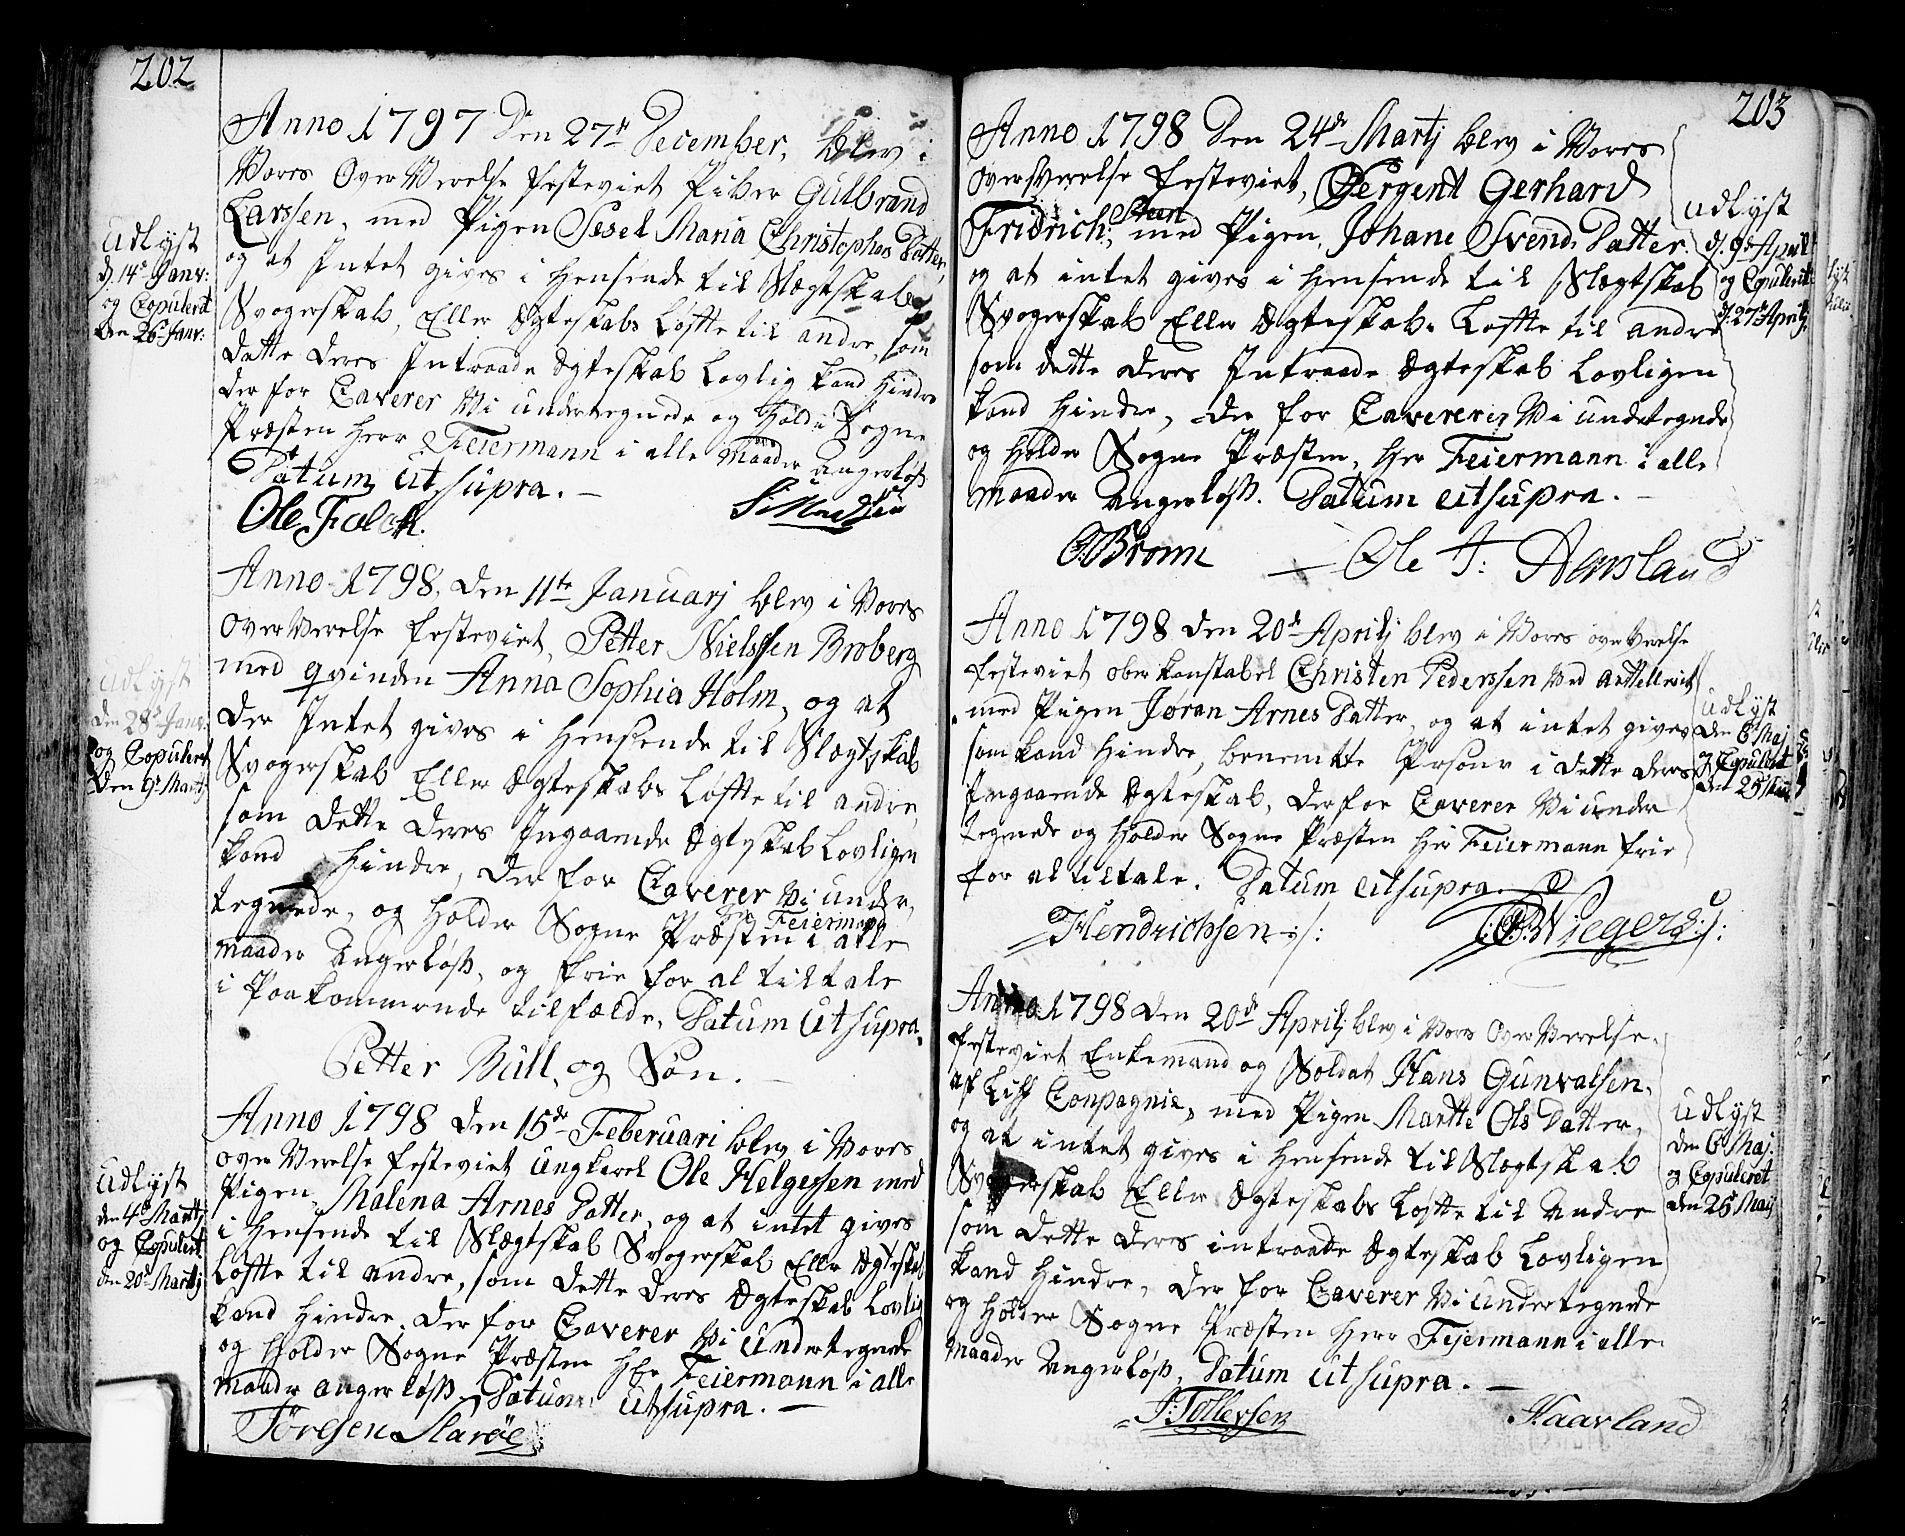 202
Anno 1797 Den 27de December, blev i
Vores Over Værelse festeviet Piber Gulbrand
Larssen, med Pigen Sesel Maria Christophers Datter,
og at Intet gives i Hensende til Slægtskab
Svogerskab, Eller Ægteskabs Løffte til andre, som
dette deres Intraade Ægteskab Lovlig kand Hindre
der for Caverer Vi undertegnede og Holde Sogne
Præsten Herr Feiermann i alle Maader Angerløss
Datum Utsupra. –
Ole Falck.
Udlyst
d. 14de Janv:
og Copulert
den 26de Janv:
Anno 1798, den 11te Januarj blev i Vores
Over Værelse festeviet, Petter Nielssen Broberg
med Qvinden Anna Sophia Holm, og at
der Intet gives i Hensende til Slægtskab
Svogerskab Eller Ægteskabs Løffte til andre,
som dette deres Ingaaende Ægteskab Lovligen
kand Hindre, der for Caverer Vi under,
tegnede, og Holder Sogne Præsten Feiermand i alle
Maader Angerløss, og frie for al tiltale
i Paakommende tilfælde, Datum Utsupra.
Petter Büll, og Søn. –
Udlyst
den 28de Janv:
og Copulert
Den 9de Martj
Anno 1798 den 15de Februari blev i Vores
over Værelse festeviet Ungkarl Ole Helgessen med
Pigen Malena Arnes Datter, og at intet gives
i Hensende til Slægtskab Svogerskab Eller Ægteskab
Løffte til andre, som dette deres Ægteskab Lovlig
kand Hindre. der for Caverer Vi Undertegnede
og Holder Sogne Præsten Hr Feiermann i alle
Maader angerløss, Datum Utsupra. –
Udlyst
den 4de Martj
og Copulert
den 20de Martj
203
Anno 1798 Den 24de Martj blev i Vores
Overværelse festeviet, Sergent Gerhard
Fridrich Steen med Pigen, Johane Svends Datter.
og at intet gives i Hensende til Slægtskab
Svogerskab Eller Ægteskabs Løffte til andre
som dette deres Intraade Ægteskab Lovligen
kand Hindre, der for Caverer Vi undetegnede
og Holder Sogne Præsten, Her Feiermann i alle
Maader Angerløss. Datum Utsupra. –
Brom Ole T: Aensland
Udlyst
d. 9de April
og Copulerit
d. 27de Aprilj
Anno 1798 den 20de Aprilj blev i Vores over Værelse
festeviet ober konstabel Christen Pederssen ved Arttelleriet
med Pigen Jøran Arnes Datter, og at intet gives
som kand Hindre, benemte Persomer i dette deres
Ingaaende Ægteskab, der for Caverer Vi under
tegnede og Holder Sogne Præsten Her Feiermann frie
for al tiltale. Datum Utsupra.
Hendrichsen Wiegers
Udlyst
den 6te Maj
og Copulert
den 25 Maj
Anno 1798 den 20de Aprilj blev i Vores Over Værelse.
festeviet Enkemand og Soldat Hans Gunvalsen.
af Liff Conpagnie, med Pigen Martte Ols Datter,
og at intet gives i Hensende til Slægtskab
Svogerskab Eller Ægteskabs Løffte til Andre
som dette deres intraade Ægteskab Lovligen
kand Hindre, der for Caverer Vi Undertegnede
og Holder Sogne Præsten Herr Feiermann i alle
Maader Angerløss, Datum Utsupra. –
T: Tollefsen Haavland
Udlyst
den 6 Maj
og Copuleret
den 25 Maj